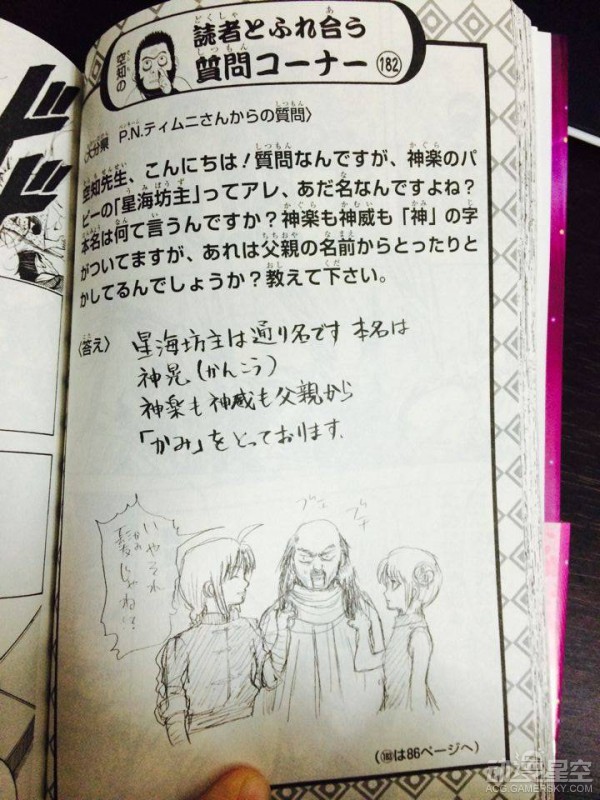 空知の
読者とふれ合う
質問コーナー 182
〈大分県 P.N.ティムニさんからの質問〉
空知先生、こんにちは!質問なんですが、神楽のパ
ピーの「星海坊主」ってアレ、あだ名なんですよね?
本名は何て言うんですか?神楽も神威も「神」の字
がついてますが、あれは父親の名前からとったりと
かしてるんでしょうか?教えて下さい。
〈答え〉
星海坊主は通り名です 本名は
神晃(かんこう)
神楽も神威も父親から
「かみ」をとっております。
いやそれ
髪じゃね!?
ブチ
ブチ
(183は86ページへ)
动漫星空
ACG.GAMERSKY.COM